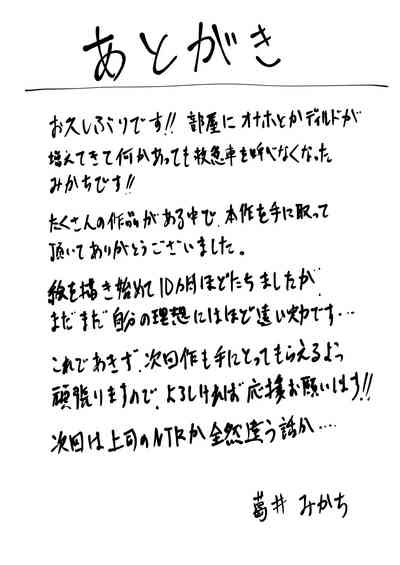 あとがき
お久しぶりです!! 部屋にオナホとかディルドが
増えてきて何かあっても救急車を呼べなくなった
みかちです!!
たくさんの作品がある中で、本作を手に取って
頂いてありがとうございました。
絵を描き始めて10カ月ほどたちましたが、
まだまだ自分の理想にはほど遠い実力です…
これであきず、次回作も手にとってもらえるよう
頑張りますので、よろしければ応援お願いします!!
次回は上司のNTRか全然違う話か…
葛井 みかち